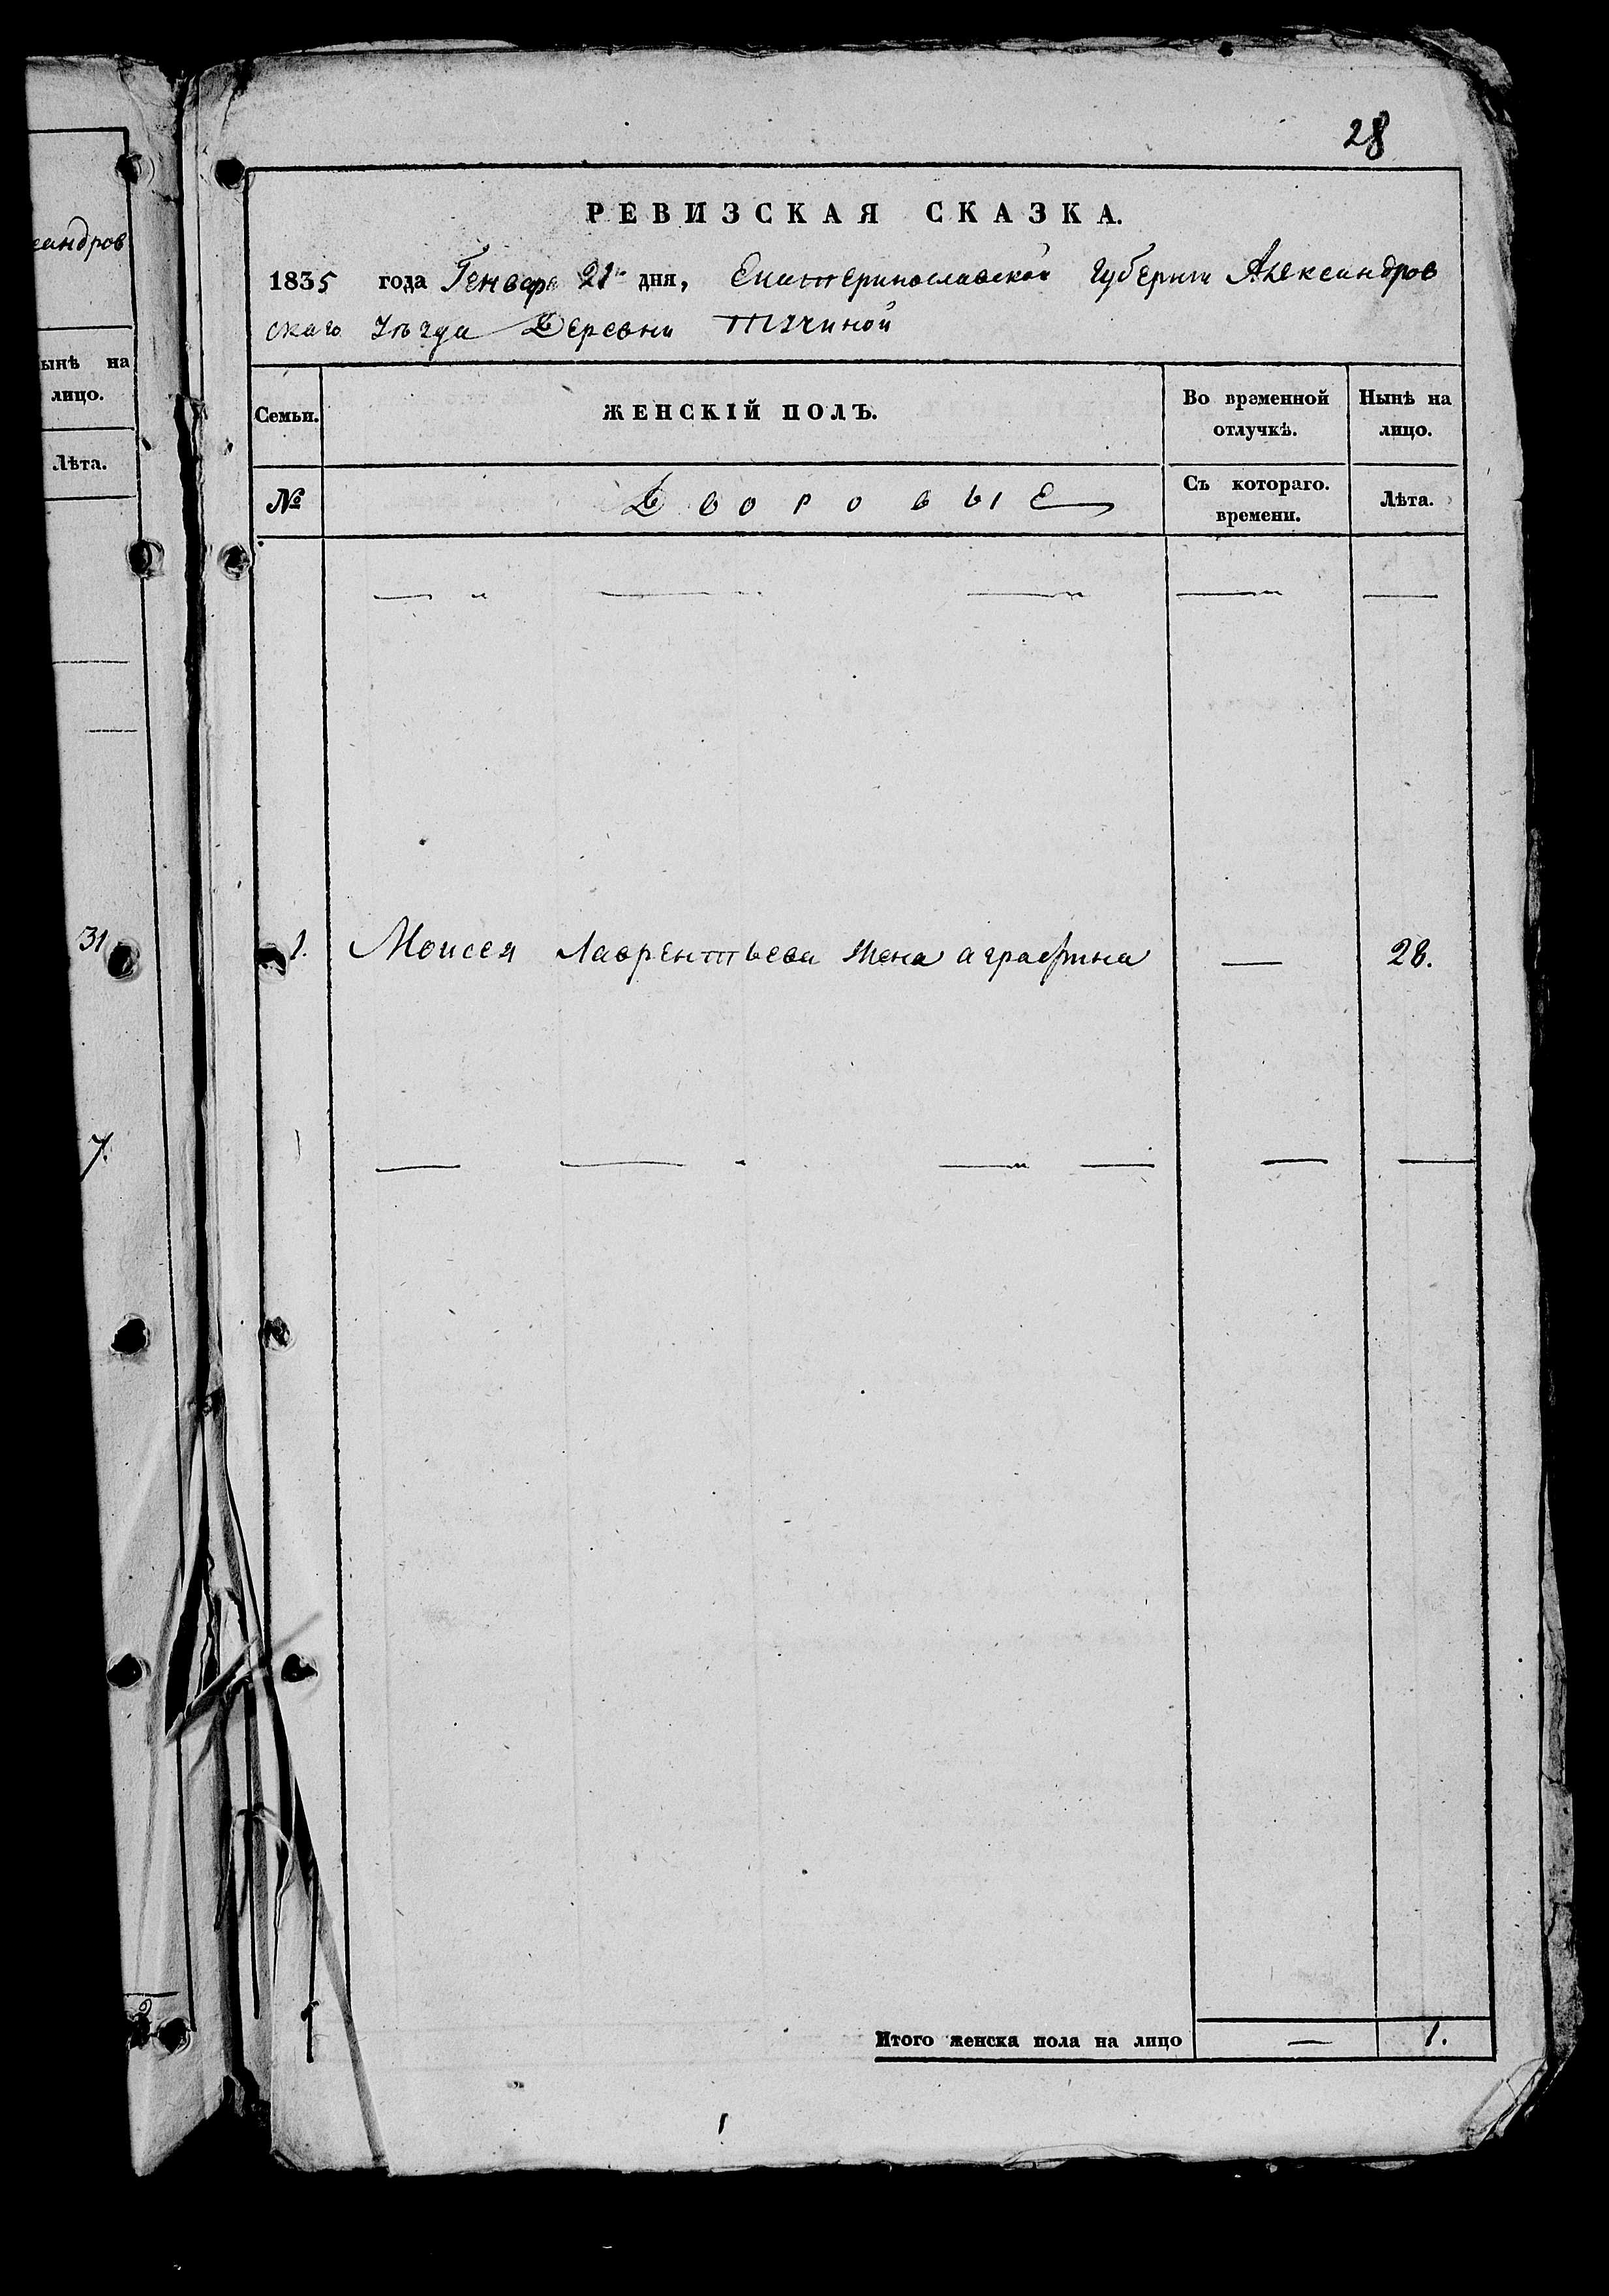 еандров
ынѣ на
лицо.
Лѣта.
31
7.
28
РЕВИЗСКАЯ СКАЗКА.
1835 года Генваря 21 дня, Екатеринославской Губернии Александров
скаго Уѣзда Деревни
Семьи. ЖЕНСКІЙ ПОЛЪ. Во временной отлучкѣ. Нынѣ на лицо.
№ Дворовые Съ котораго. времени. Лѣта.
1. Моисея Лаврентьева жена аграфина — 28.
Итого женска пола на лицо — 1.